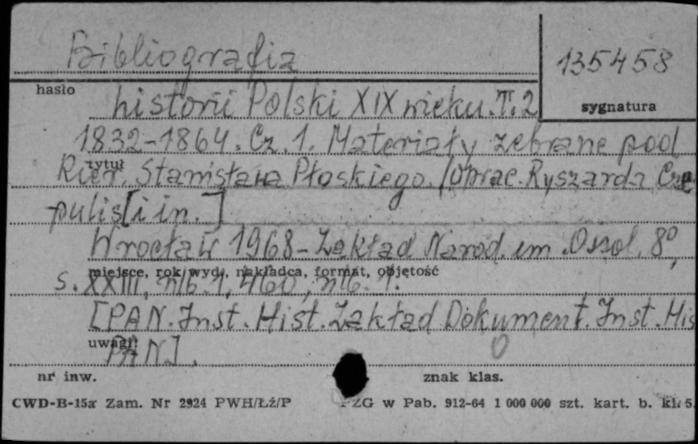 Bibliografia
135458
hasło
sygnatura
historii Polski XIX wieku. T. 2
1832-1864. Cz. 1. Materiały zebrane pod
tytuł
Kier. Stanisława Płoskiego. /Oprac. Ryszarda Cze
pulis [i in.]
Wrocław 1968 - Zakład Narod. im. Ossol. 8°,
miejsce, rok wyd., nakładca, format, objętość
s. XXIII, nlb. 1, 460, nlb. 1.
[PAN. Inst. Hist. Zakład Dokument. Inst. His
uwagi:
PAN].
nr inw.
znak klas.
CWD-B-15a Zam. Nr 2924 PWH/Łź/P
ZG w Pab. 912-64 1 000 000 szt. kart. b. kl. 5.